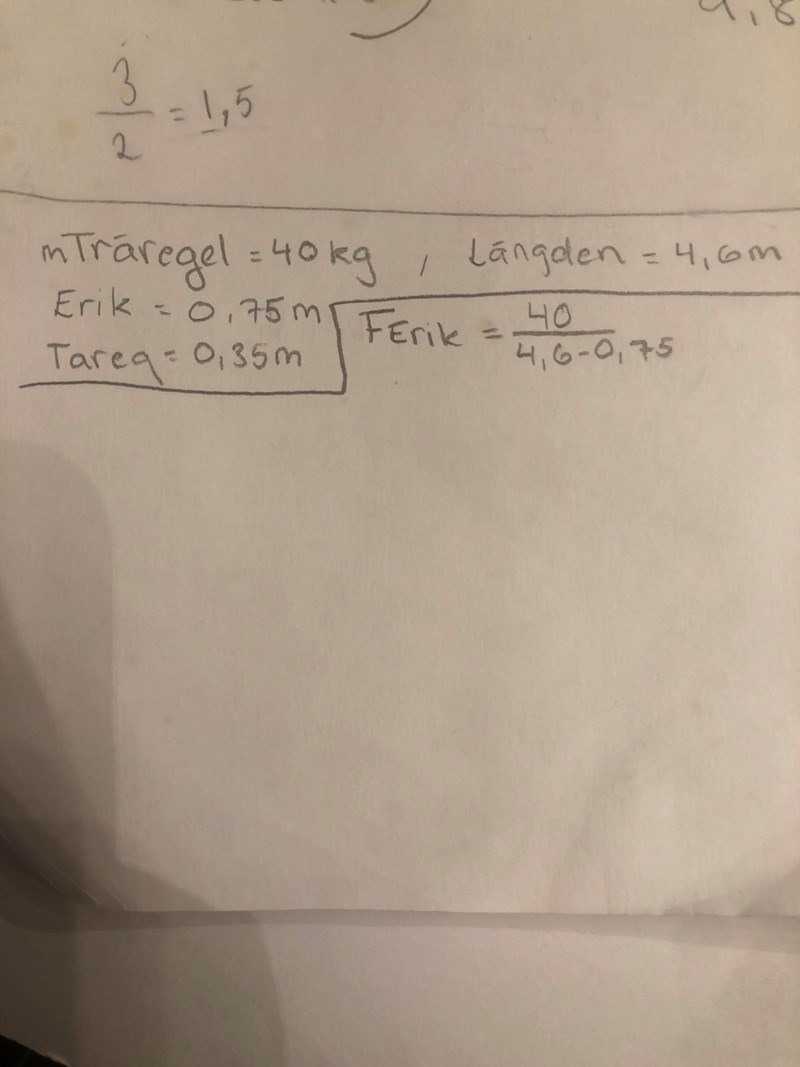 3/2 = 1,5
mTräregel = 40 kg , Längden = 4,6m
Erik = 0,75m
Tareq = 0,35m
FErik = 40/4,6-0,75